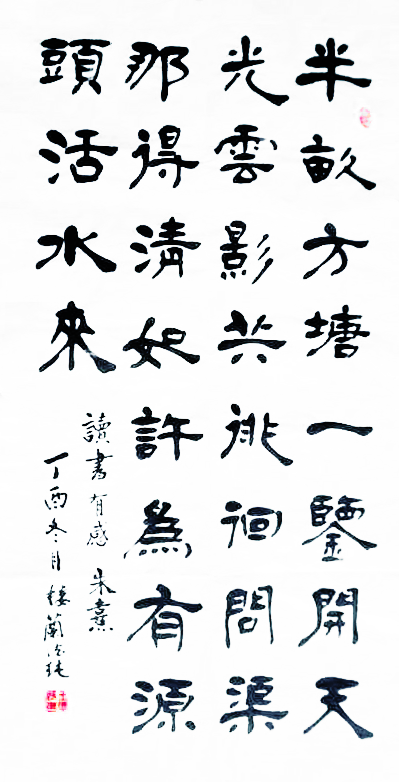 半畝方塘一鑒開天
光雲影共徘徊問渠
那得清如許為有源
頭活水來
讀書有感 朱熹
丁酉冬月樓蘭